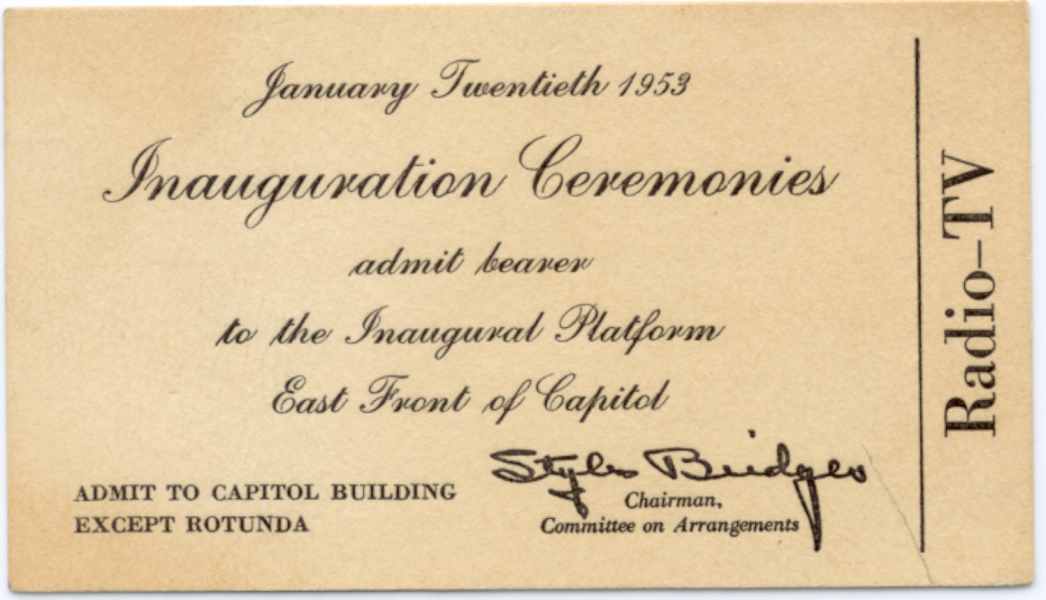 January Twentieth 1953
Inauguration Ceremonies
admit bearer
to the Inaugural Platform
East Front of Capitol
Styles Bridges
Chairman,
Committee on Arrangements
ADMIT TO CAPITOL BUILDING
EXCEPT ROTUNDA
Radio–TV